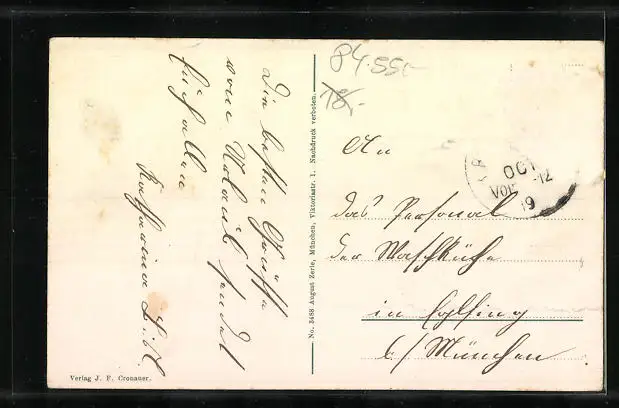 Die besten Grüße
vom Urlaub sendet
für alle
Katharina
Verlag J. P. Cronauer.
No. 3488 August Zerle, München, Viktoriastr. 1. Nachdruck verboten.
84.55,-
18,-
OCT
Vor -12
19
An
das Personal
der Waschküche
in Eglfing
b/ München